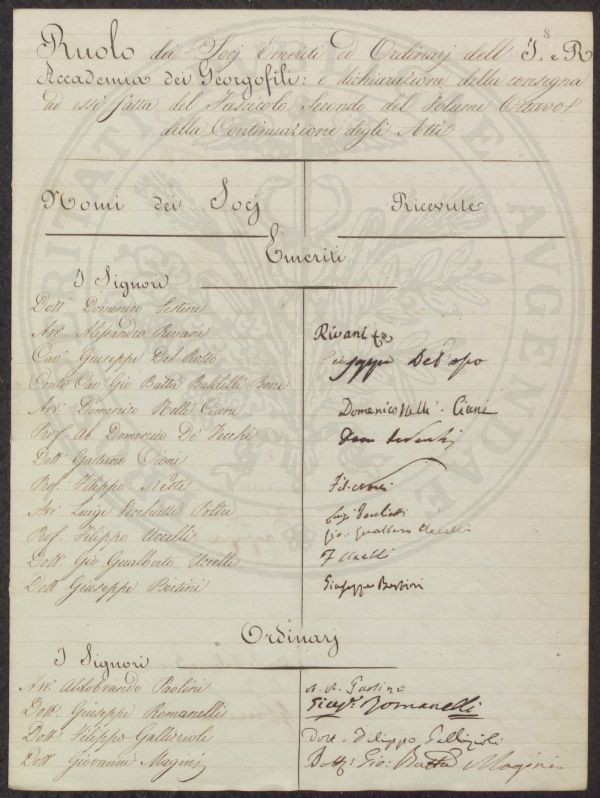 8
Ruolo dei Socj Emeriti ed Ordinarj dell' I. e R
Accademia dei Georgofili: e dichiarazione della consegna
ad essi fatta del Fascicolo Secondo del Volume Ottavo
della Continuazione degli Atti
Nomi dei Socj Ricevute
Emeriti
I Signori
Dott. Domenico Sestini
Avv. Alessandro Rivani Rivani
Cav. Giuseppe Del Rosso Giuseppe Del
Conte Cav. Gio Batta Baldelli Boni
Avv. Domenico Nelli Ciani Domenico Nelli Ciani
Prof. Ab. Domenico De' Vecchi
Dott. Gaetano Cioni
Prof. Filippo Nesti
Avv. Luigi Poltri Luigi
Prof. Filippo Uccelli Gio. Gualberto Uccelli
Dott. Gio Gualberto Uccelli F Uccelli
Dott. Giuseppe Bertini Giuseppe Bertini
Ordinarj
I Signori
Avv. Aldobrando Paolini A.
Dott. Giuseppe Romanelli Giusepe. Romanelli
Dott. Filippo Gallizioli Dott. Filippo Gallizioli
Dott. Giovanni Magini Dott: Gio: Batta Magini
CIVITATIS AUGENDAE